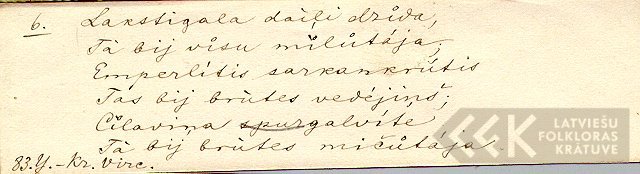 6. Lakstigala daiļi dzida,
Tà bij visu mìlůtája;
Emperlítis sarkankrůtis
Tas bij brůtes vedéjinš;
Cilaviņa spurgalvíte
Tà bij brůtes mičůtája.
83. Y. - Kr. Virc.
LATVIEŠU
FOLKLORAS
KRĀTUVE